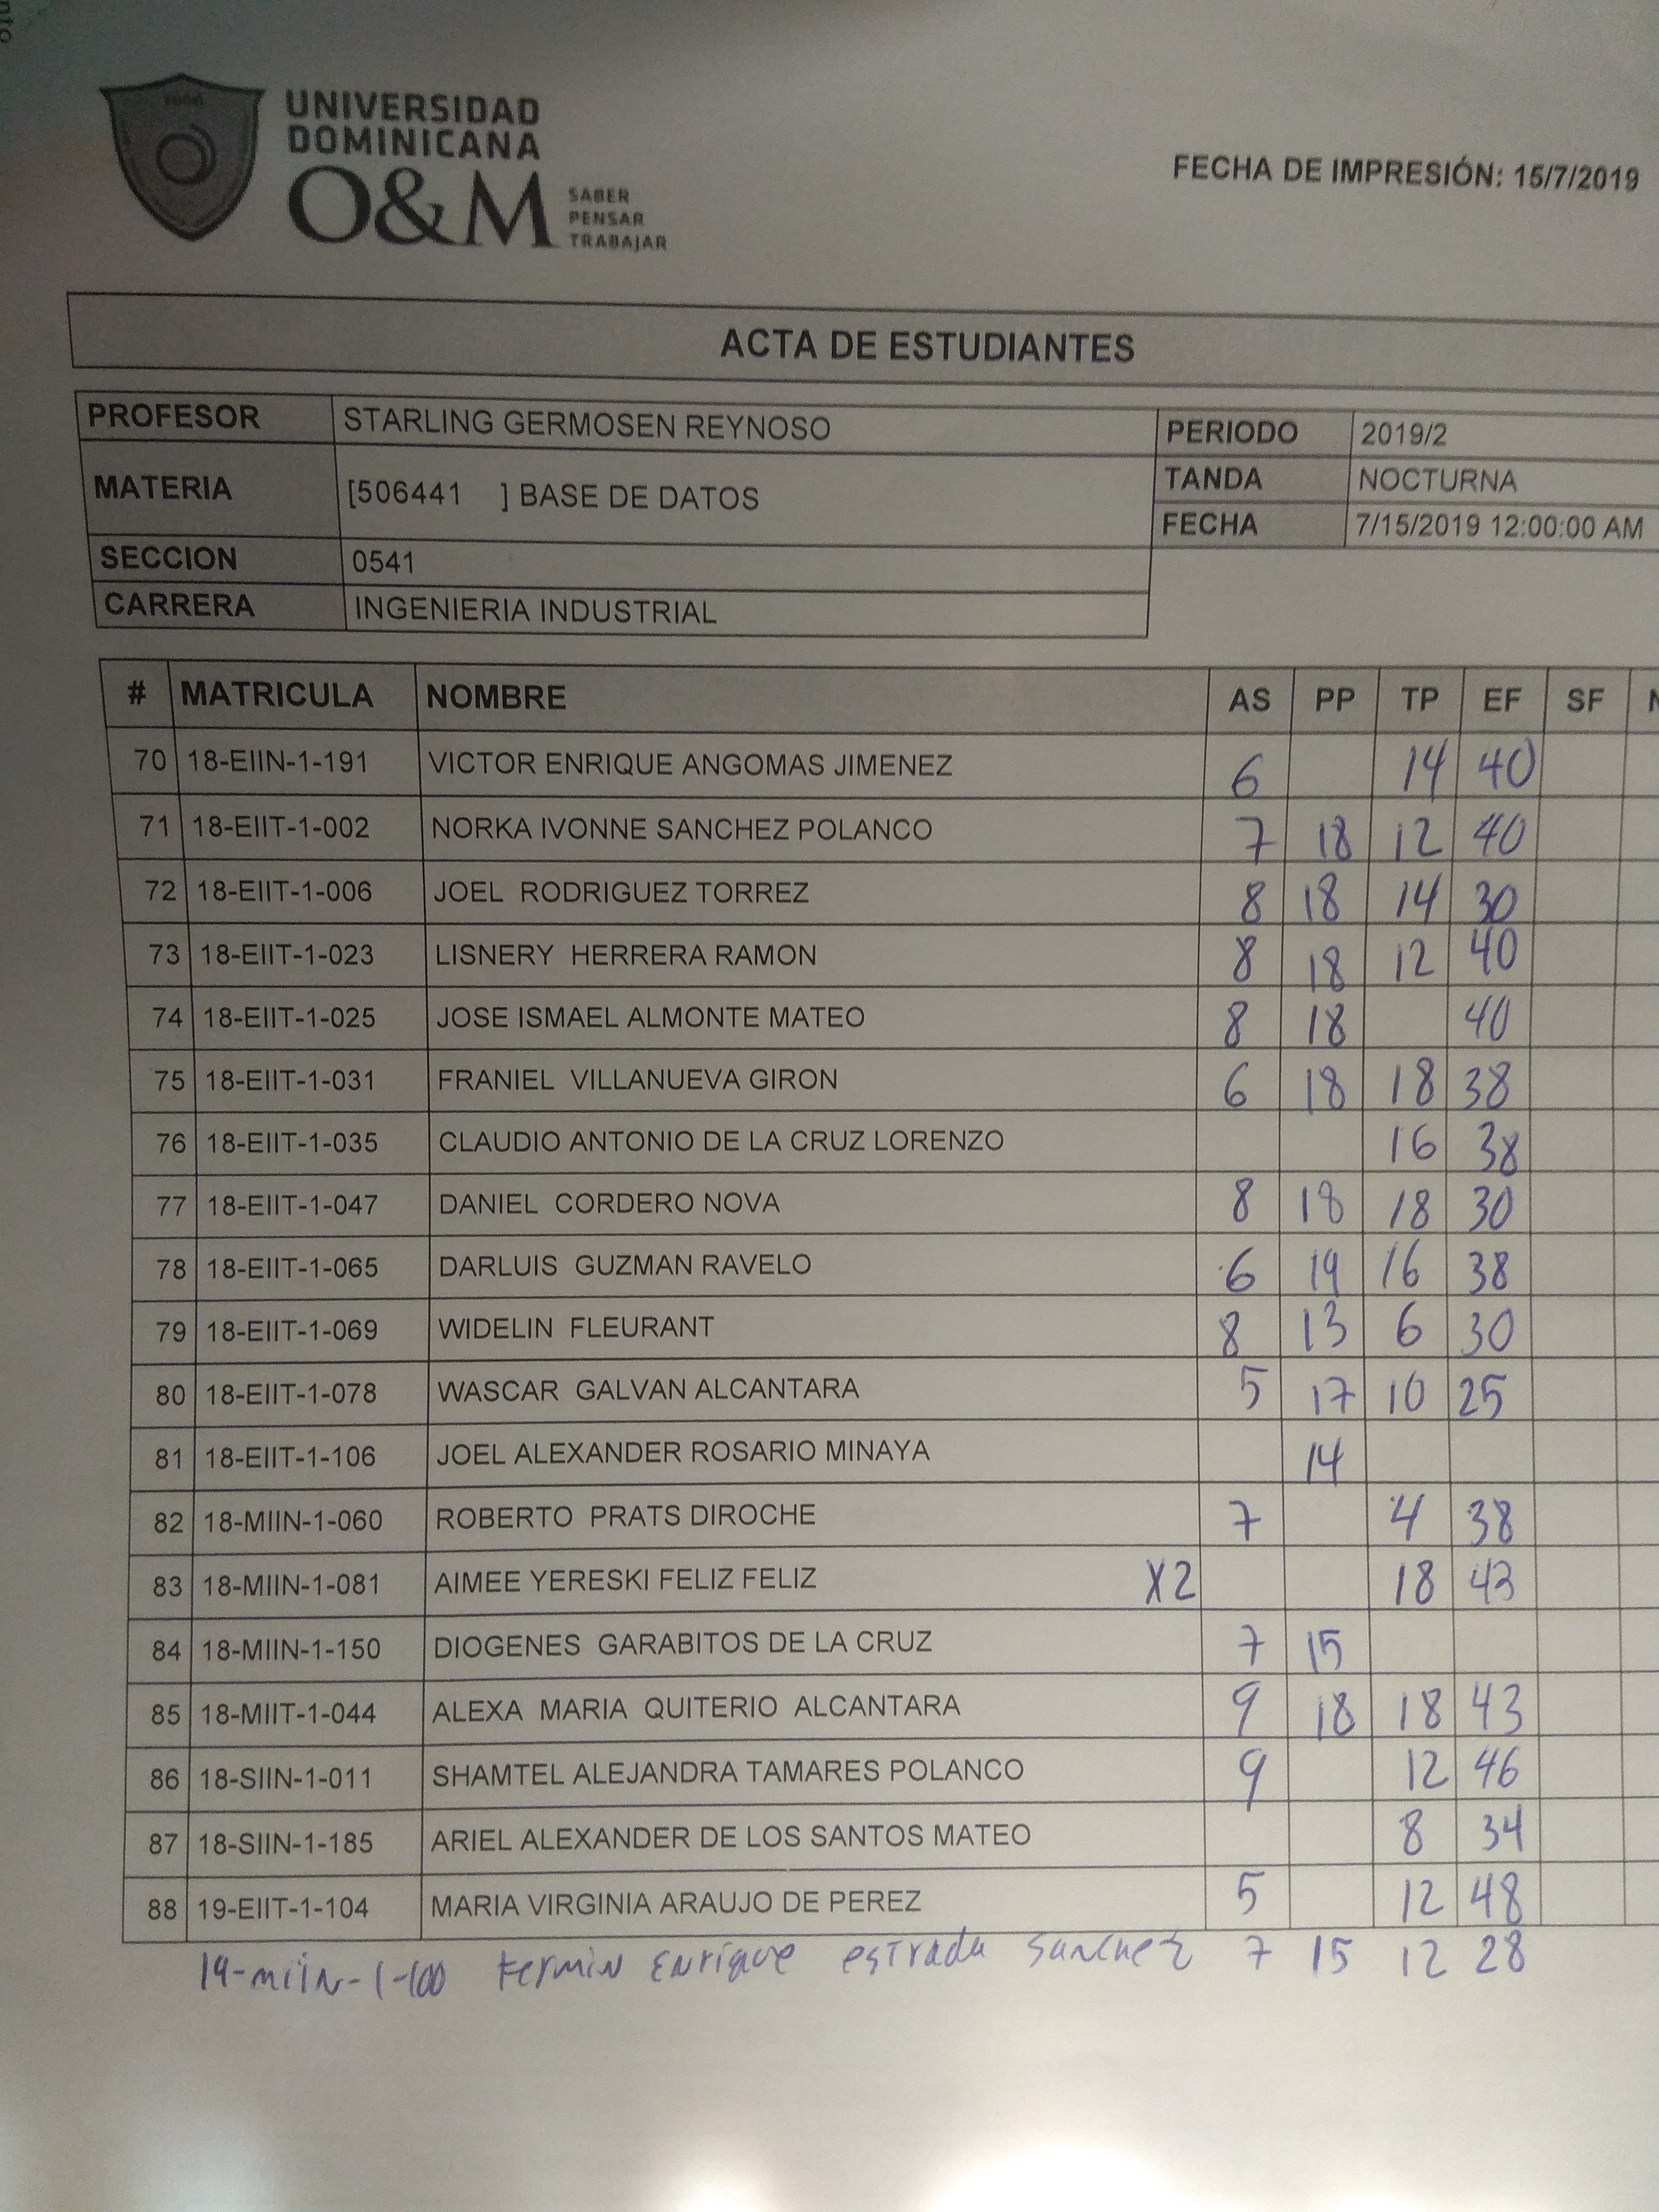 nto
UNIVERSIDAD
DOMINICANA
O&M
SABER
PENSAR
TRABAJAR
FECHA DE IMPRESIÓN: 15/7/2019
ACTA DE ESTUDIANTES
PROFESOR STARLING GERMOSEN REYNOSO PERIODO 2019/2
MATERIA [506441 ] BASE DE DATOS TANDA NOCTURNA
FECHA 7/15/2019 12:00:00 AM
SECCION 0541
CARRERA INGENIERIA INDUSTRIAL
# MATRICULA NOMBRE AS PP TP EF SF N
70 18-EIIN-1-191 VICTOR ENRIQUE ANGOMAS JIMENEZ 6 14 40
71 18-EIIT-1-002 NORKA IVONNE SANCHEZ POLANCO 7 18 12 40
72 18-EIIT-1-006 JOEL RODRIGUEZ TORREZ 8 18 14 30
73 18-EIIT-1-023 LISNERY HERRERA RAMON 8 18 12 40
74 18-EIIT-1-025 JOSE ISMAEL ALMONTE MATEO 8 18 40
75 18-EIIT-1-031 FRANIEL VILLANUEVA GIRON 6 18 18 38
76 18-EIIT-1-035 CLAUDIO ANTONIO DE LA CRUZ LORENZO 16 38
77 18-EIIT-1-047 DANIEL CORDERO NOVA 8 18 18 30
78 18-EIIT-1-065 DARLUIS GUZMAN RAVELO 6 19 16 38
79 18-EIIT-1-069 WIDELIN FLEURANT 8 13 6 30
80 18-EIIT-1-078 WASCAR GALVAN ALCANTARA 5 17 10 25
81 18-EIIT-1-106 JOEL ALEXANDER ROSARIO MINAYA 14
82 18-MIIN-1-060 ROBERTO PRATS DIROCHE 7 4 38
83 18-MIIN-1-081 AIMEE YERESKI FELIZ FELIZ X2 18 43
84 18-MIIN-1-150 DIOGENES GARABITOS DE LA CRUZ 7 15
85 18-MIIT-1-044 ALEXA MARIA QUITERIO ALCANTARA 9 18 18 43
86 18-SIIN-1-011 SHAMTEL ALEJANDRA TAMARES POLANCO 9 12 46
87 18-SIIN-1-185 ARIEL ALEXANDER DE LOS SANTOS MATEO 8 34
88 19-EIIT-1-104 MARIA VIRGINIA ARAUJO DE PEREZ 5 12 48
19-miiN-1-100 Enrique estrada sanchez 7 15 12 28